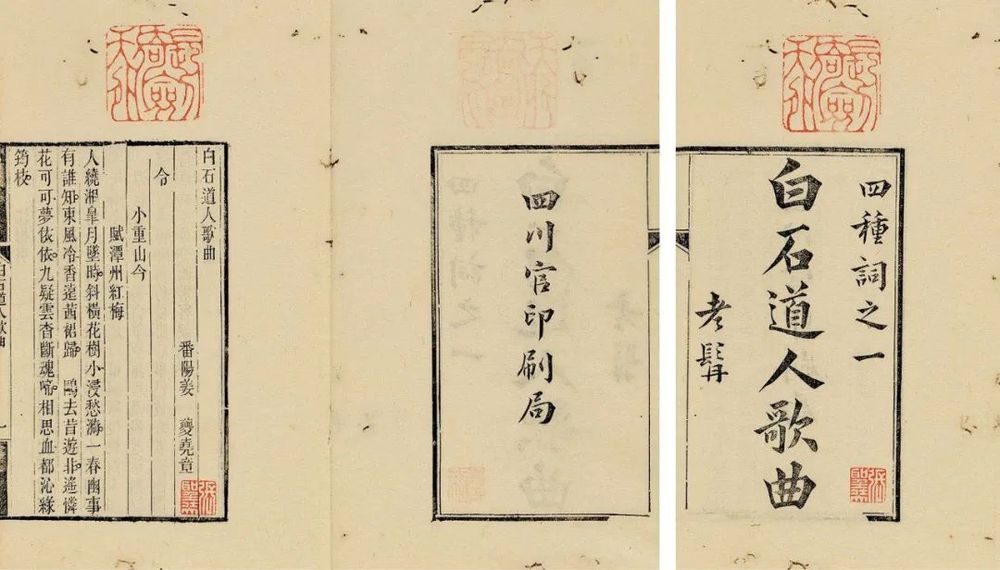 四種詞之一
白石道人歌曲
老髯
四川官印刷局
白石道人歌曲
番陽姜 夔堯章
令
小重山令
賦潭州紅梅
人繞湘皋月墜時。斜橫花樹小浸愁漪。一春幽事
有誰知。東風冷香遠茜裙歸。 鷗去昔遊非。遙憐
花可可夢依依。九疑雲杳斷魂啼。相思血都沁綠
筠枝。
白石道人歌曲
一